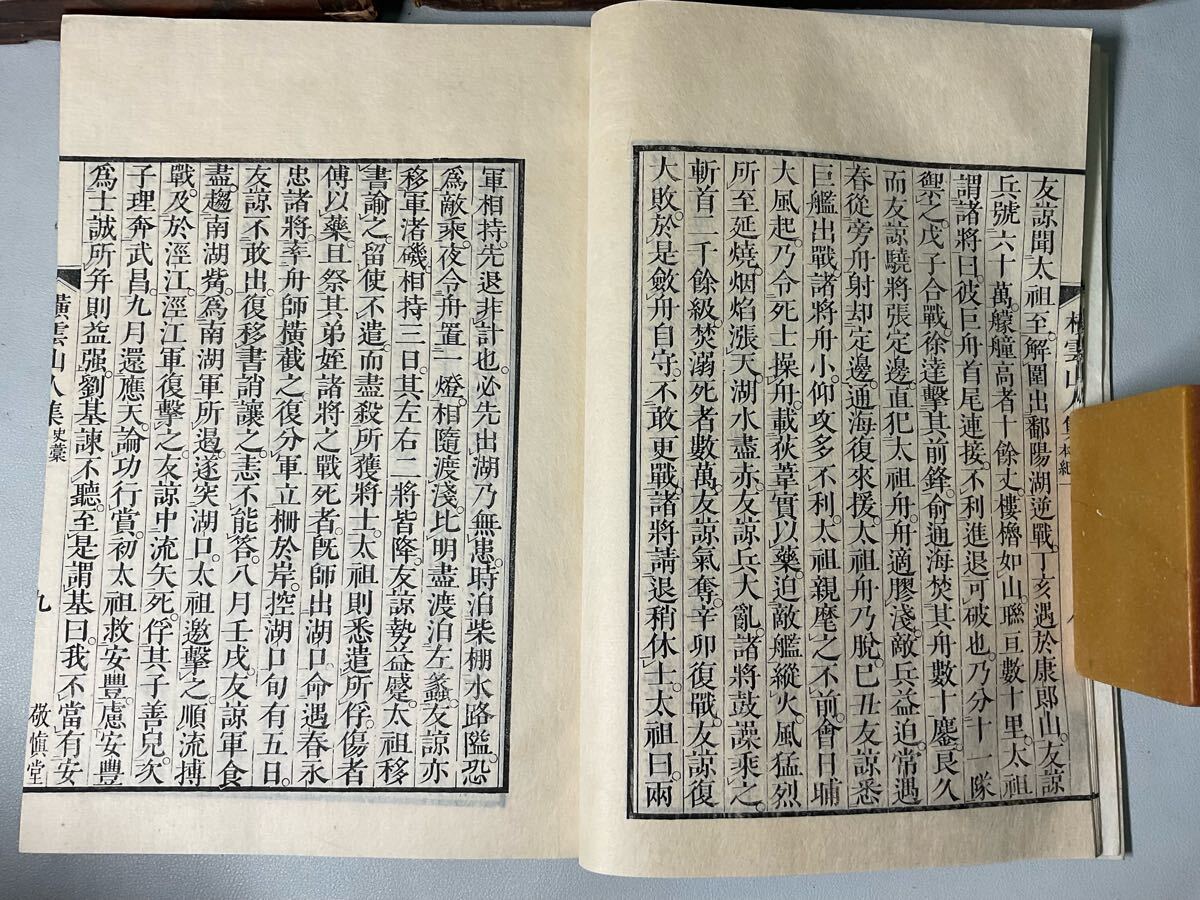 友諒聞太祖至。解圍出鄱陽湖逆戰。丁亥遇於康郎山。友諒
兵號六十萬。艨艟高者十餘丈樓櫓如山。聯亘數十里。太祖
謂諸將曰。彼巨舟首尾連接。不利進退。可破也。乃分十一隊
禦之。戊子合戰。徐達擊其前鋒。俞通海焚其舟數十。鏖良久
而友諒驍將張定邊。直犯太祖舟。舟適膠淺。敵兵益迫。常遇
春從旁射却定邊。通海復來援。太祖舟乃脫。巳丑友諒悉
巨艦出戰諸將舟小。仰攻多不利。太祖親麾之不前會日晡
大風起。乃令死士操舟。載荻葦實以藥。迫敵艦縱火。風猛烈
所至延燒。烟焰漲天。湖水盡赤。友諒兵大亂。諸將鼓譟乘之。
斬首二千餘級。焚溺死者數萬。友諒氣奪。辛卯復戰。友諒復
大敗。於是斂舟自守。不敢更戰。諸將請退稍休士。太祖曰。兩
橫雲山人集 本紀
軍相持。先退非計也。必先出湖乃無患。時泊柴棚水路隘。恐
為敵乘。夜令舟置一燈。相隨渡淺。比明盡渡泊左蠡。友諒亦
移軍渚磯。相持三日。其左右二將皆降。友諒勢益蹙。太祖移
書諭之。留使不遣。而盡殺所獲將士。太祖則悉遣所俘。傷者
傅以藥。且祭其弟姪諸將之戰死者。旣師出湖口。命遇春永
忠諸將。率舟師橫截之。復分軍立柵於岸。控湖口旬有五日。
友諒不敢出。復移書誚讓之。恚不能答。八月壬戌。友諒軍食
盡。趨南湖觜。為南湖軍所遏。遂突湖口。太祖邀擊之。順流搏
戰。及於涇江。涇江軍復擊之。友諒中流矢死。俘其子善兒。次
子理奔武昌。九月還應天。論功行賞。初太祖救安豐。慮安豐
為士誠所幷則益強。劉基諫不聽。至是謂基曰。我不當有安
橫雲山人集 史藁
九
敬愼堂